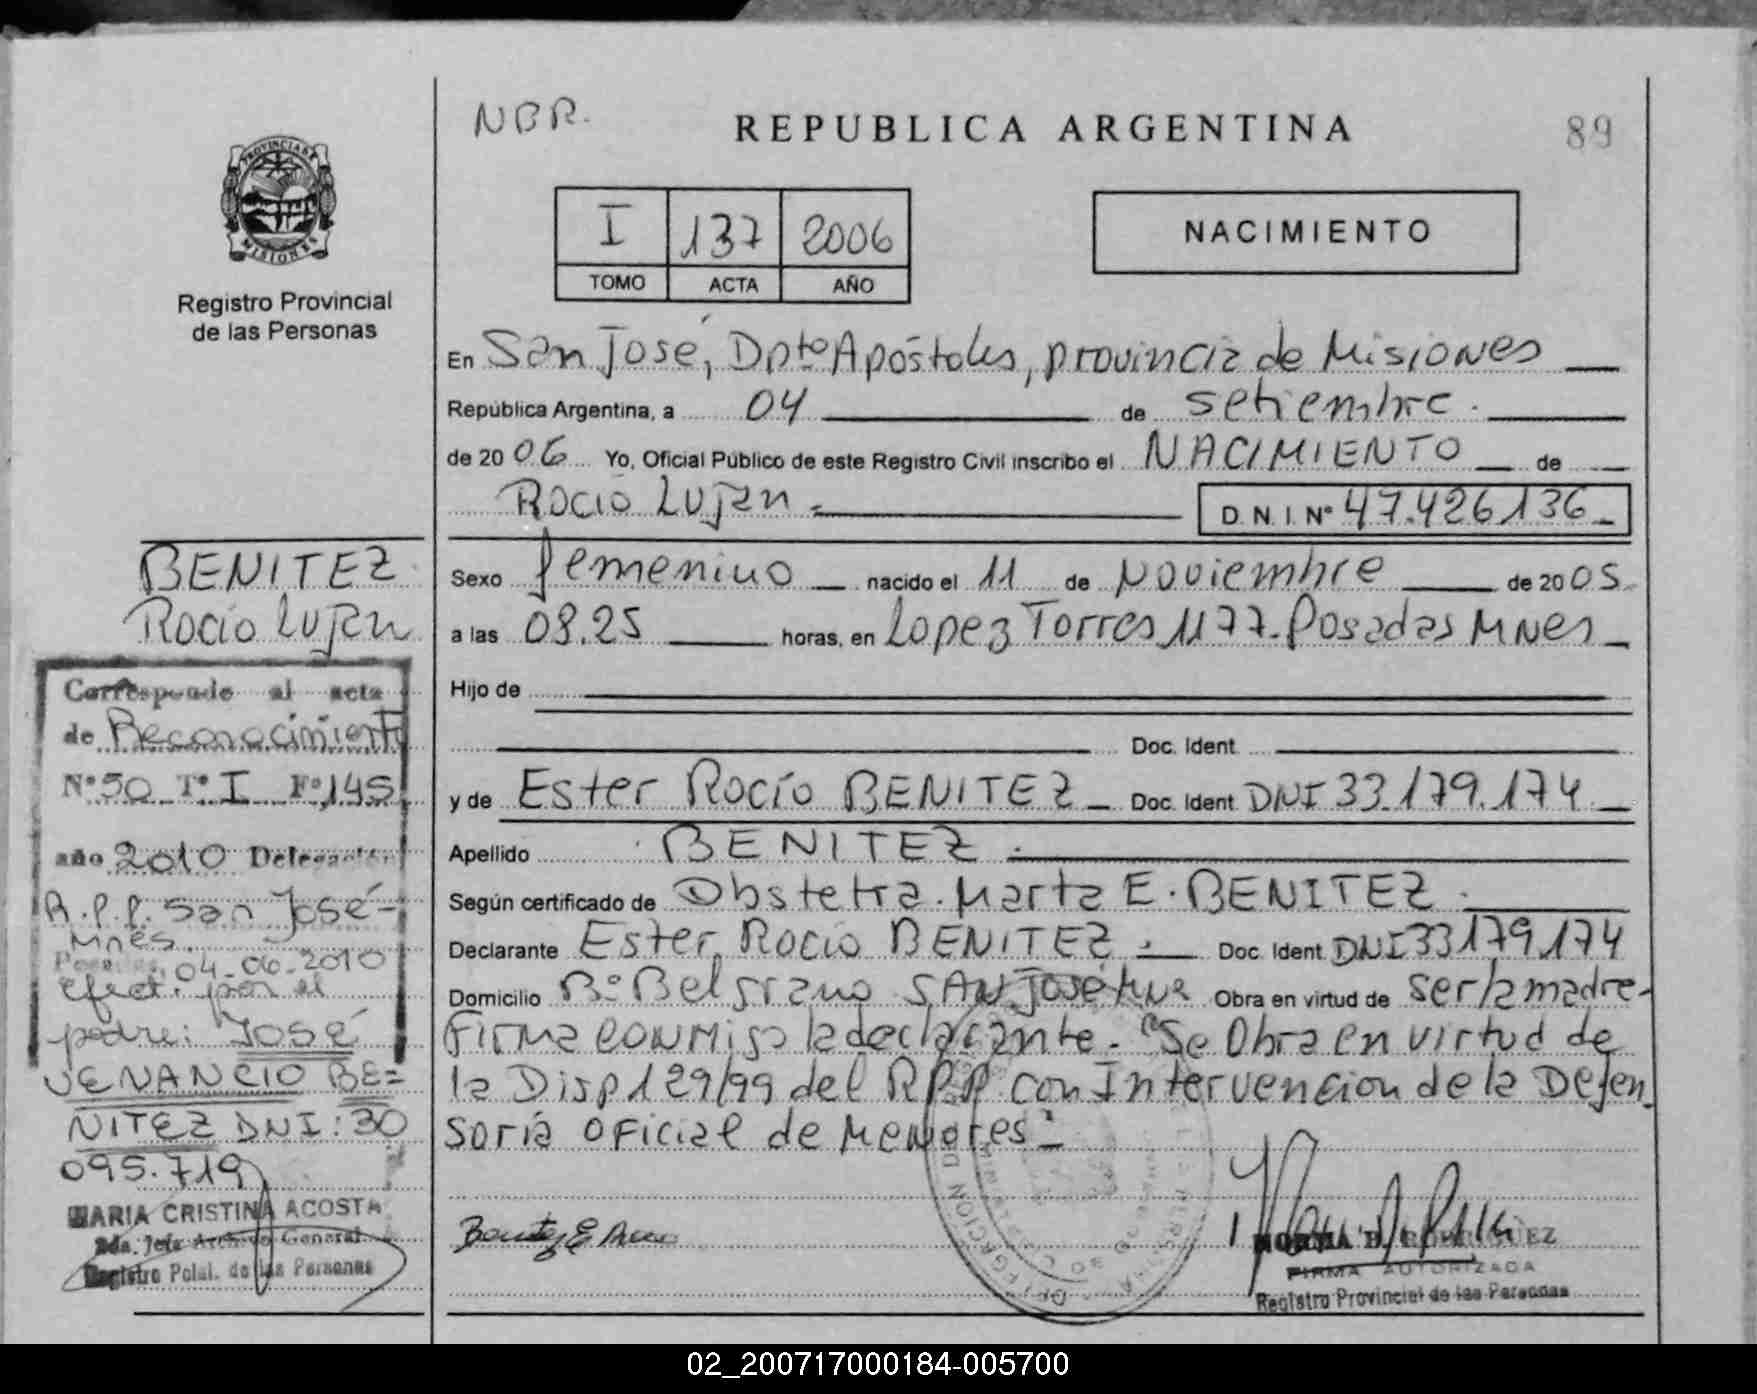 NBR.
REPUBLICA ARGENTINA
89
PROVINCIA DE
MISIONES
Registro Provincial
de las Personas
I 137 2006
TOMO ACTA AÑO
NACIMIENTO
En San José, Dpto Apóstoles, provincia de Misiones
República Argentina, a 04 de setiembre.
de 2006 Yo, Oficial Público de este Registro Civil inscribo el NACIMIENTO de
Rocio Lujan D.N.I. Nº 47.426136
BENITEZ
Rocio Lujan
Sexo femenino nacido el 11 de Noviembre de 2005
a las 08.25 horas, en Lopez Torres 1177-Posadas MNes
Hijo de
Doc. Ident.
y de Ester Rocío BENITEZ Doc. Ident. DNI 33.179.174
Apellido BENITEZ
Según certificado de Obstetra. Marta E. BENITEZ.
Declarante Ester Rocio BENITEZ Doc. Ident. DNI 33179174
Domicilio Bº Belgrano SAN José Obra en virtud de ser la madre-
Firma conmigo la declarante. "Se Obra en virtud de
la Disp 129/99 del R.P.P. con Intervencion de la Defen
soría oficial de Menores"
Corresponde al acta
de Reconocimiento
Nº 50 Tº I Fº 145
año 2010 Delegación
R.P.P. San José-
Mnes.
Posadas, 04-06-2010
efect. por el
padre: José
VENANCIO BE=
NITEZ DNI: 30
095.719
MARIA CRISTINA ACOSTA
2da. Jefe Archivo General
Registro Pcial. de las Personas
Benitez E
NORMA B. RODRIGUEZ
FIRMA AUTORIZADA
Registro Provincial de las Personas
02_200717000184-005700